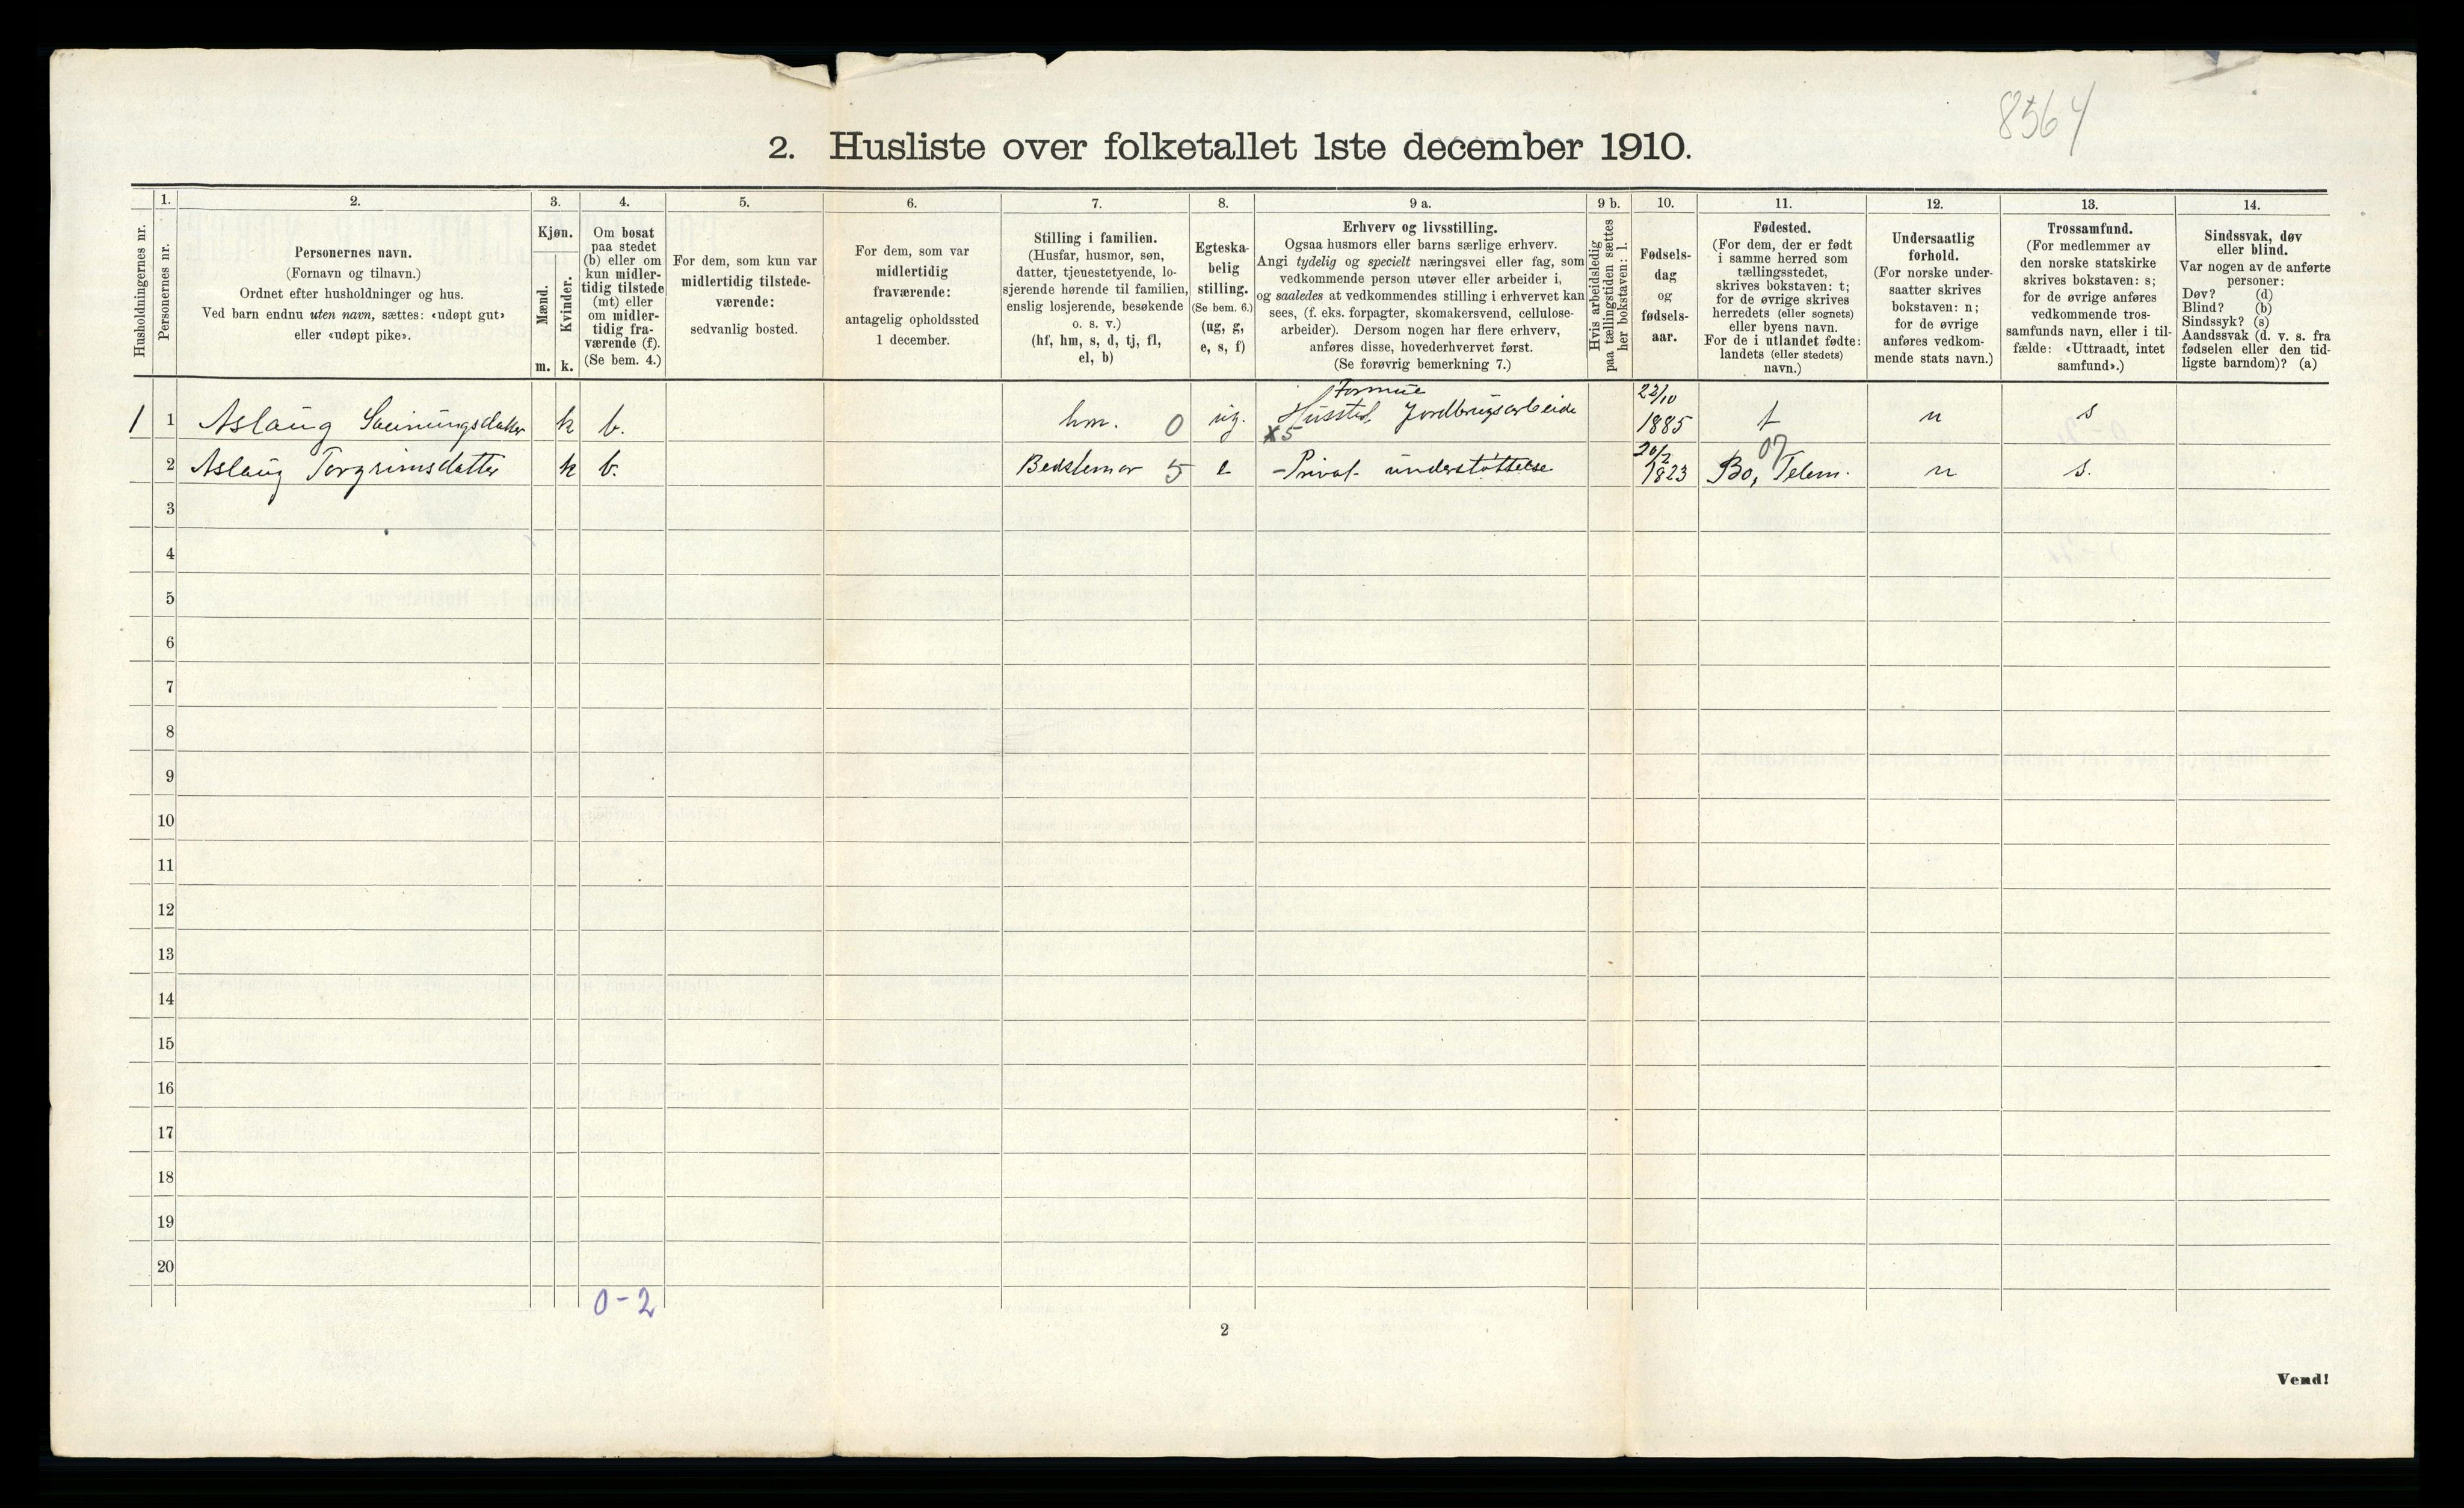 8564
2. Husliste over folketallet 1ste december 1910.
Husholdningernes nr.
1.
Personernes nr.
2.
Personernes navn.
(Fornavn og tilnavn.)
Ordnet efter husholdninger og hus.
Ved barn endnu uten navn, sættes: «udøpt gut»
eller «udøpt pike».
3.
Kjøn.
Mænd.
m.
Kvinder.
k.
4.
Om bosat
paa stedet
(b) eller om
kun midler-
tidig tilstede
(mt) eller
om midler-
tidig fra-
værende (f).
(Se bem. 4.)
5.
For dem, som kun var
midlertidig tilstede-
værende:
sedvanlig bosted.
6.
For dem, som var
midlertidig
fraværende:
antagelig opholdssted
1 december.
7.
Stilling i familien.
(Husfar, husmor, søn,
datter, tjenestetyende, lo-
sjerende hørende til familien,
enslig losjerende, besøkende
o. s. v.)
(hf, hm, s, d, tj, fl,
el, b)
8.
Egteska-
belig
stilling.
(Se bem. 6.)
(ug, g,
e, s, f)
9 a.
Erhverv og livsstilling.
Ogsaa husmors eller barns særlige erhverv.
Angi tydelig og specielt næringsvei eller fag, som
vedkommende person utøver eller arbeider i,
og saaledes at vedkommendes stilling i erhvervet kan
sees, (f. eks. forpagter, skomakersvend, cellulose-
arbeider). Dersom nogen har flere erhverv,
anføres disse, hovederhvervet først.
(Se forøvrig bemerkning 7.)
9 b.
Hvis arbeidsledig
paa tællingstiden sættes
her bokstaven: l.
10.
Fødsels-
dag
og
fødsels-
aar.
11.
Fødested.
(For dem, der er født
i samme herred som
tællingsstedet,
skrives bokstaven: t;
for de øvrige skrives
herredets (eller sognets)
eller byens navn.
For de i utlandet fødte:
landets (eller stedets)
navn.)
12.
Undersaatlig
forhold.
(For norske under-
saatter skrives
bokstaven: n;
for de øvrige
anføres vedkom-
mende stats navn.)
13.
Trossamfund.
(For medlemmer av
den norske statskirke
skrives bokstaven: s;
for de øvrige anføres
vedkommende tros-
samfunds navn, eller i til-
fælde: «Uttraadt, intet
samfund».)
14.
Sindssvak, døv
eller blind.
Var nogen av de anførte
personer:
Døv? (d)
Blind? (b)
Sindssyk? (s)
Aandssvak (d. v. s. fra
fødselen eller den tid-
ligste barndom)? (a)
Formue 22/10
1 1 Aslaug Sveinungsdatter k b. hm. 0 ug. x5 Husstel, Jordbrugsarbeide 1885 t n s
20/2 07
2 Aslaug Torgrimsdatter k b. Bedstemor 5 e - Privat understøttelse 1823 Bo, Telem. n s.
3
4
5
6
7
8
9
10
11
12
13
14
15
16
17
18
19
20
0-2
2
Vend!